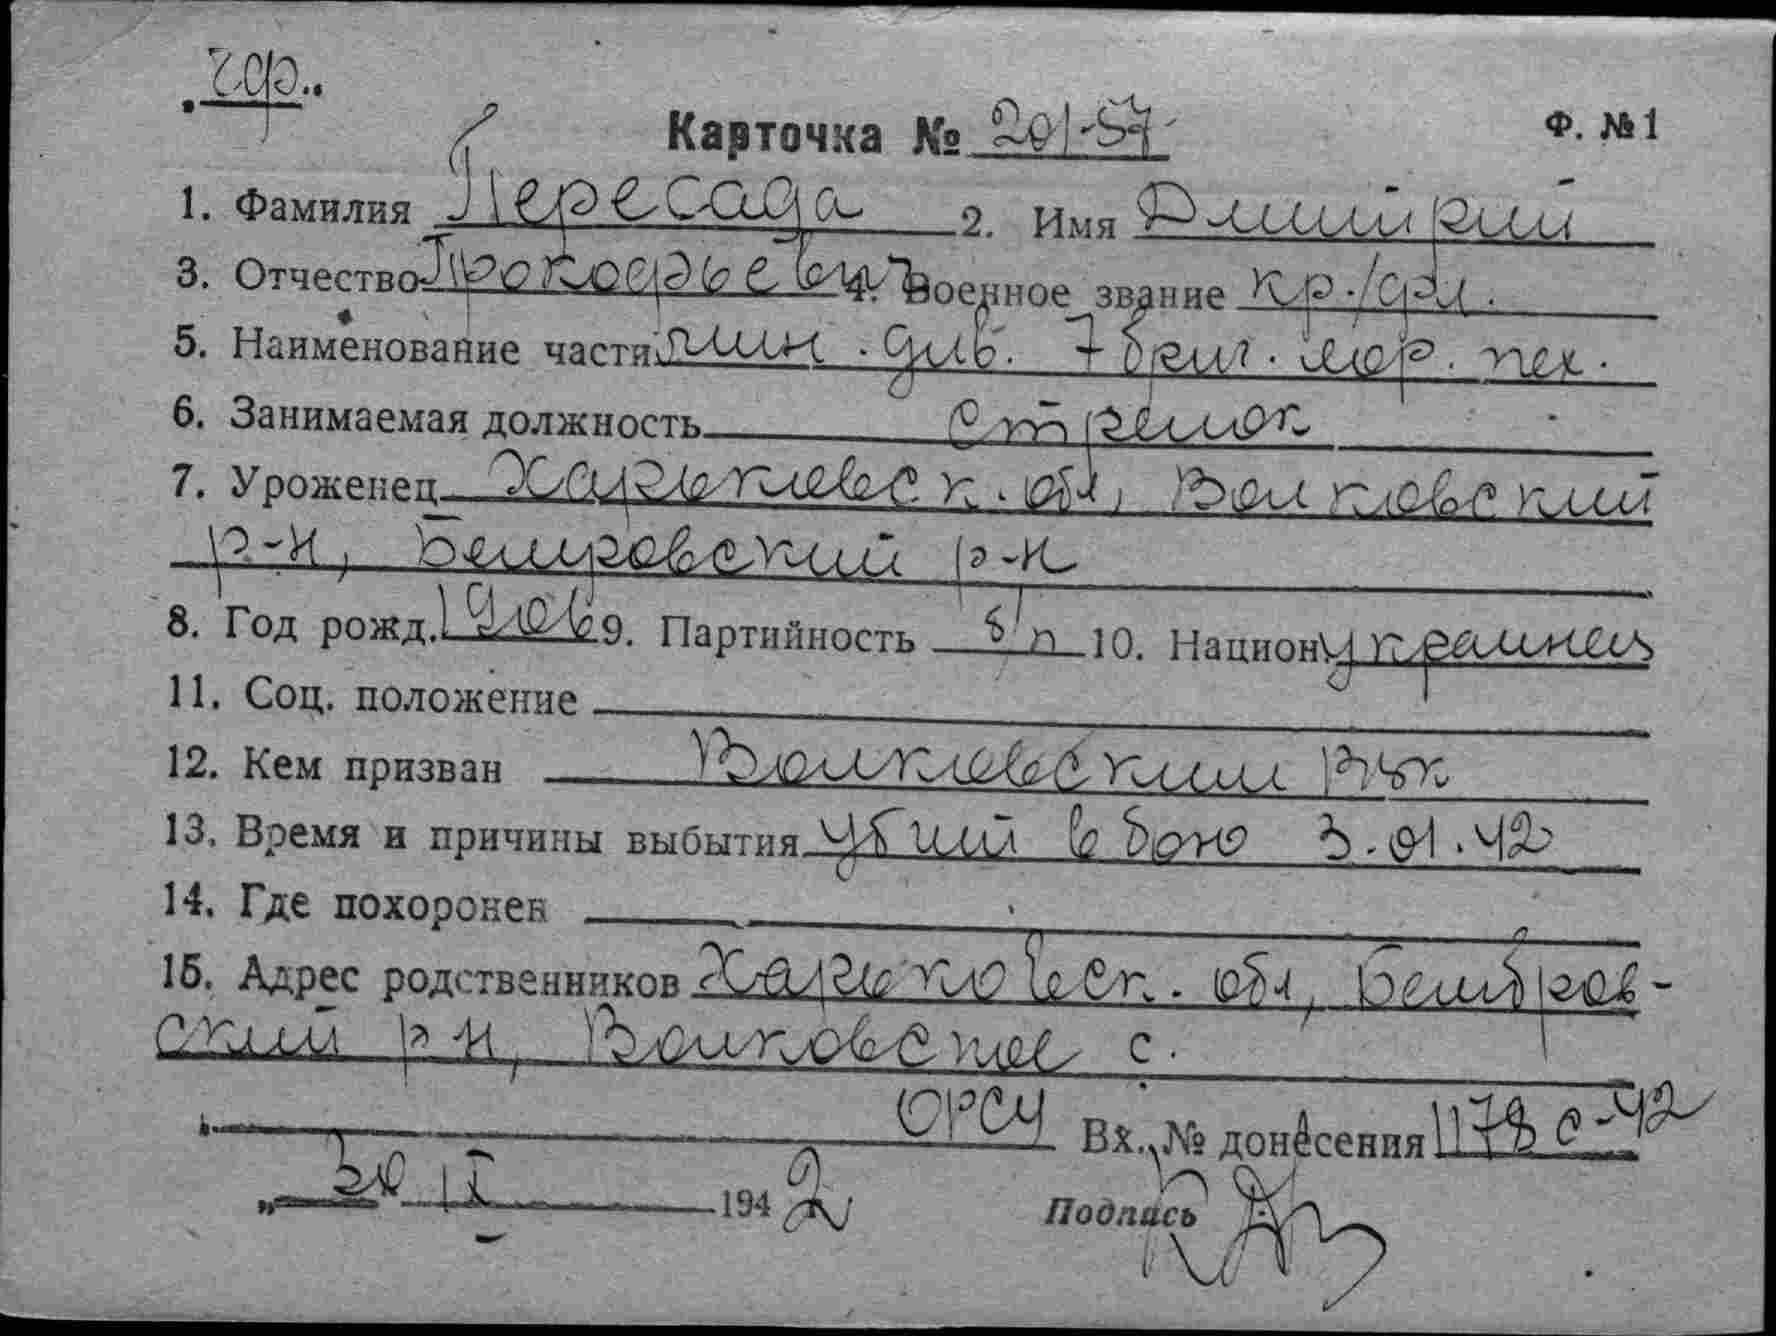 чф.
Карточка № 201-57 Ф. №1
1. Фамилия Пересада 2. Имя Дмитрий
3. Отчество Прокофьевич 4. Военное звание кр./фл.
5. Наименование части мин. див. 7 бриг. мор. пех.
6. Занимаемая должность стрелок
7. Уроженец Харьковск. обл, Волковский
р-н, р-н
8. Год рожд. 1906 9. Партийность б/п 10. Национ. украинец
11. Соц. положение
12. Кем призван Волковским РВК
13. Время и причины выбытия убит в бою 3.01.42
14. Где похоронен
15. Адрес родственников Харьковск. обл,
ский р-н, с.
ОРСУ Вх. № донесения 1178 с-42
„ 30 IX 1942 Подпись